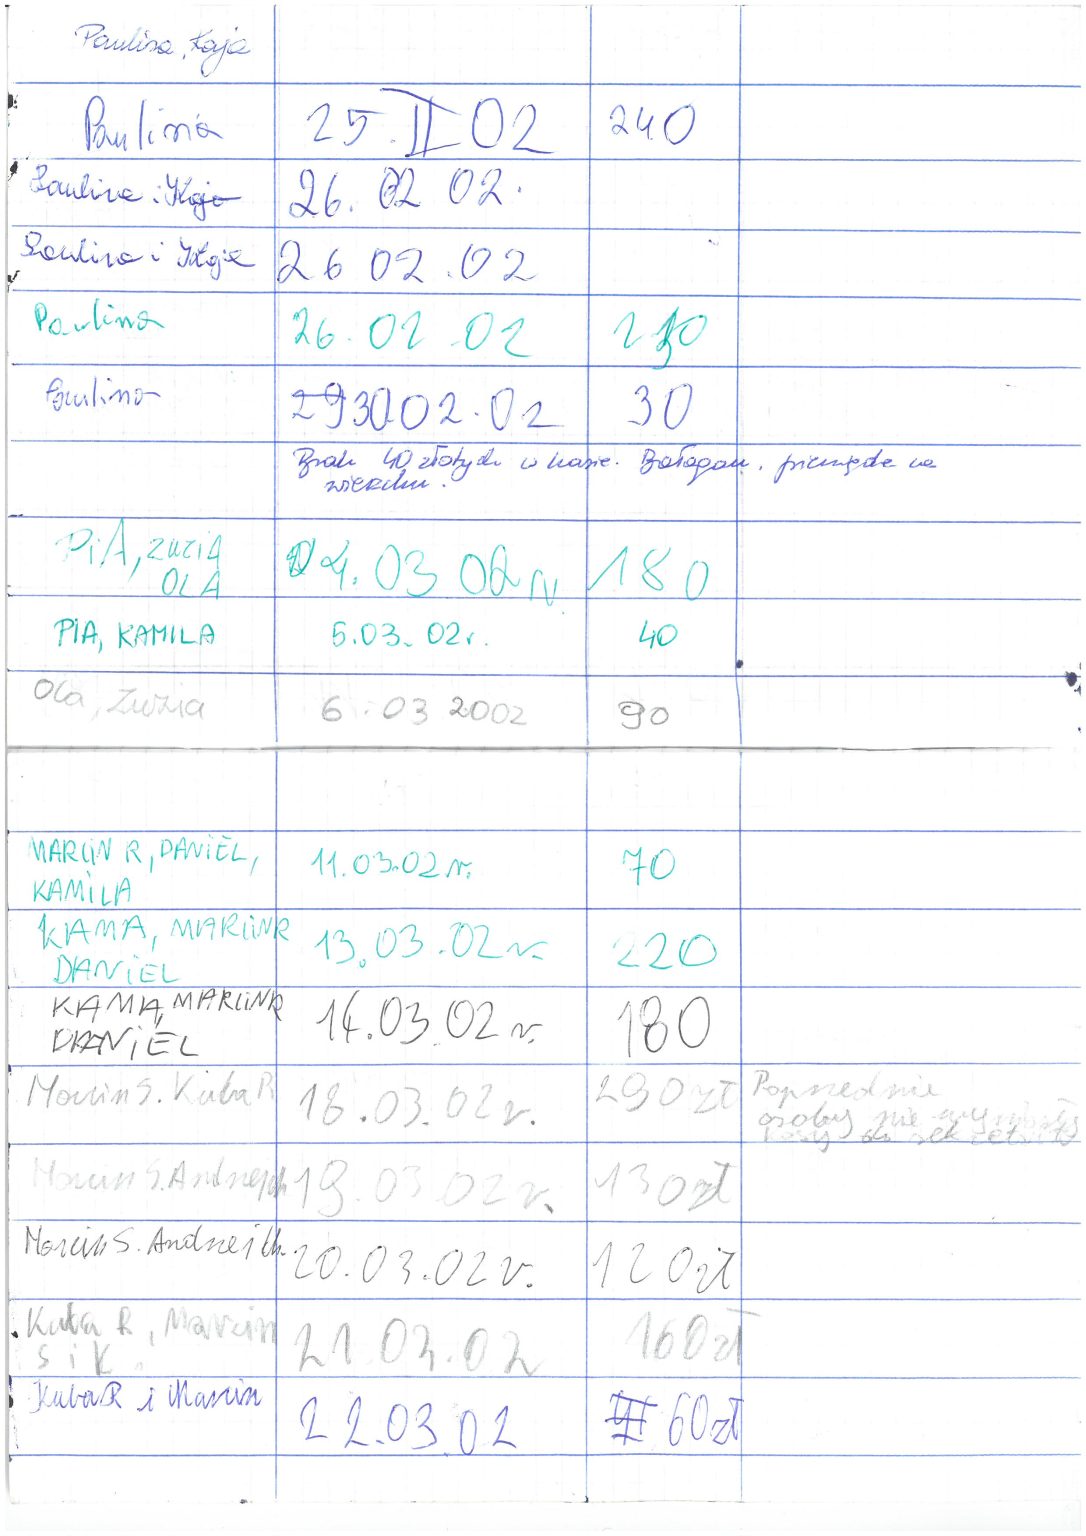 Paulina, Kaja
Paulina 25.II 02 240
Paulina i Kaja 26. 02 02.
Paulina i Kaja 26 02.02
Paulina 26.02.02
Paulina 02.02 30
Brak 40 złotych w kasie. Bałagan, pieniądze na
wierzchu.
PiA, ZUZIA 04.03 02 r. 180
OLA
PIA, KAMILA 5.03.02r. 40
Ola, Zuzia 6.03 2002 90
MARCIN R, DANiEL, 11.03.02 r. 70
KAMiLA
KAMA, MARCIN R 13.03.02 r. 220
DANiEL
KAMA, MARCIN R 14.03.02 r. 180
DANiEL
Marcin S. Kuba R 18.03.02r. 290 zł Poprzednie
osoby nie
kasy do
Marcin S. Andrzej 19.03.02r. 130zł
Marcin S. Andrzej 20.03.02r. 120zł
Kuba R, Marcin 21.03.02 160zł
S i K.
Kuba R i Marcin 22.03.02 60zł